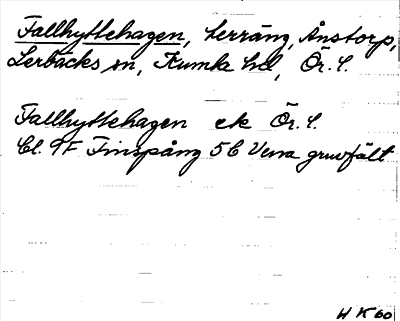 Fallhyttehagen, terräng, Ånstorp,
Lerbäcks sn, Kumla hd, Ör. l.
Fallhyttehagen ek Ör. l.
Bl. 9F Finspång 5C Vena gruvfält
H K 60